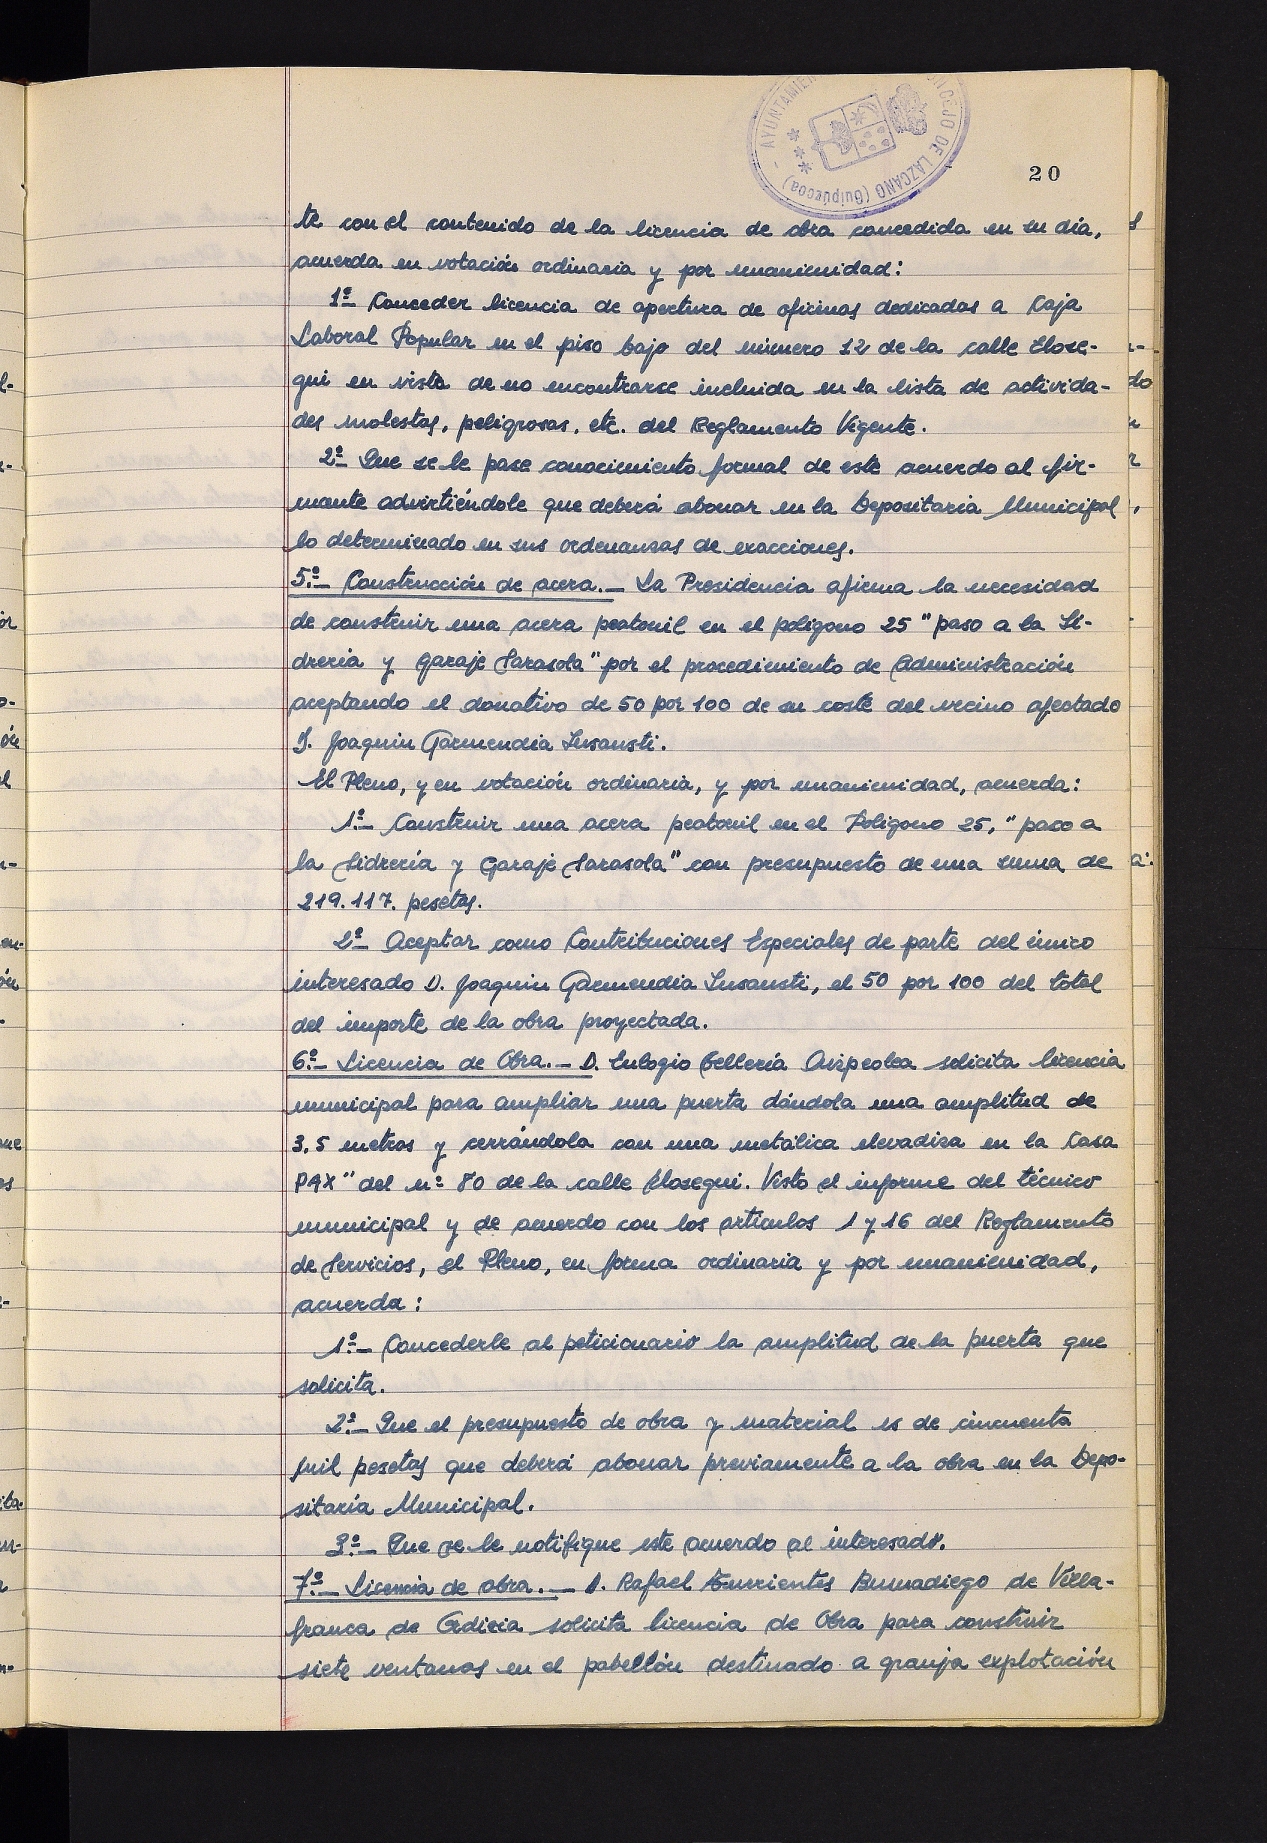 AYUNTAMIEN CEJO DE LAZCANO (Guipúzcoa)
20
te con el contenido de la licencia de obra concedida en su día,
acuerda en votación ordinaria y por unanimidad:
1º- Conceder licencia de apertura de oficinas dedicadas a Caja
Laboral Popular en el piso bajo del número 12 de la calle Elose-
gui en vista de no encontrarse incluida en la lista de activida-
des molestas, peligrosas, etc. del Reglamento Vigente.
2º- Que se le pase conocimiento formal de este acuerdo al fir-
mante advirtiéndole que deberá abonar en la Depositaria Municipal
lo determinado en sus ordenansas de exacciones.
5º- Construcción de acera.- La Presidencia afirma la necesidad
de construir una acera peatonil en el poligono 25 "paso a la Si-
drería y garaje Sarasola" por el procedimiento de Administración
aceptando el donativo de 50 por 100 de su coste del vecino afectado
D. Joaquin Garmendia Insausti.
El Pleno, y en votación ordinaria, y por unanimidad, acuerda:
1º- Construir una acera peatonil en el Poligono 25, "paso a
la Sidrería y Garaje Sarasola" con presupuesto de una suma de
219.117. pesetas.
2º- Aceptar como Contribuciones Especiales de parte del único
interesado D. Joaquin Garmendia Insausti, el 50 por 100 del total
del importe de la obra proyectada.
6º- Licencia de Obra.- D. Eulogio Tellería solicita licencia
municipal para ampliar una puerta dándola una amplitud de
3,5 metros y cerrándola con una metálica elevadiza en la Casa
PAX" del nº 80 de la calle Elosegui. Visto el informe del técnico
municipal y de acuerdo con los artículos 1 y 16 del Reglamento
de Servicios, el Pleno, en forma ordinaria y por unanimidad,
acuerda:
1º- Concederle al peticionario la amplitud de la puerta que
solicita.
2º- Que el presupuesto de obra y material es de cincuenta
mil pesetas que deberá abonar previamente a la obra en la Depo-
sitaría Municipal.
3º- Que se le notifique este acuerdo al interesado.
7º- Licencia de obra.- D. Rafael de Villa-
franca de Ordizia solicita licencia de Obra para construir
siete ventanas en el pabellón destinado a granja explotación